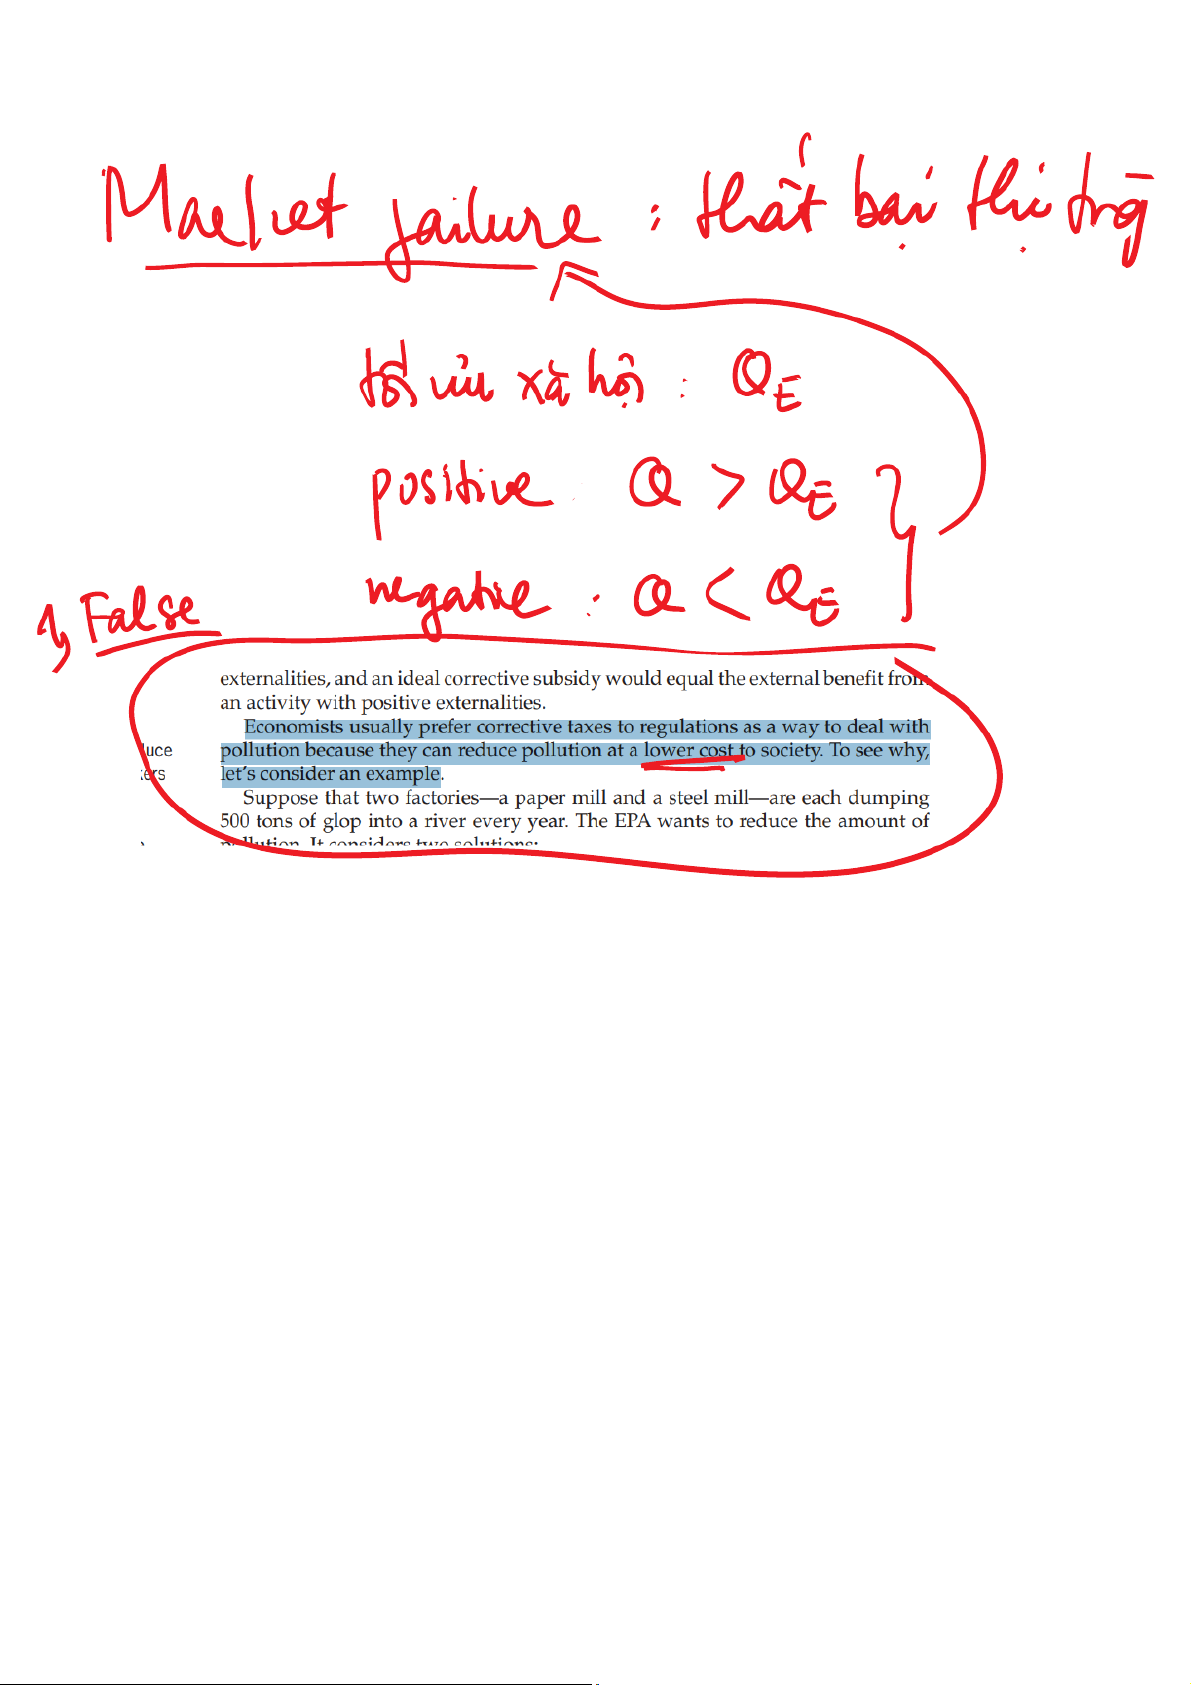 Market failure : thất bại thị trg
tối ưu xã hội : QE
positive : Q > QE
negative : Q < QE
1, False
externalities, and an ideal corrective subsidy would equal the external benefit from
an activity with positive externalities.
Economists usually prefer corrective taxes to regulations as a way to deal with
pollution because they can reduce pollution at a lower cost to society. To see why,
let's consider an example.
Suppose that two factories—a paper mill and a steel mill—are each dumping
500 tons of glop into a river every year. The EPA wants to reduce the amount of
pollution. It considers two solutions: